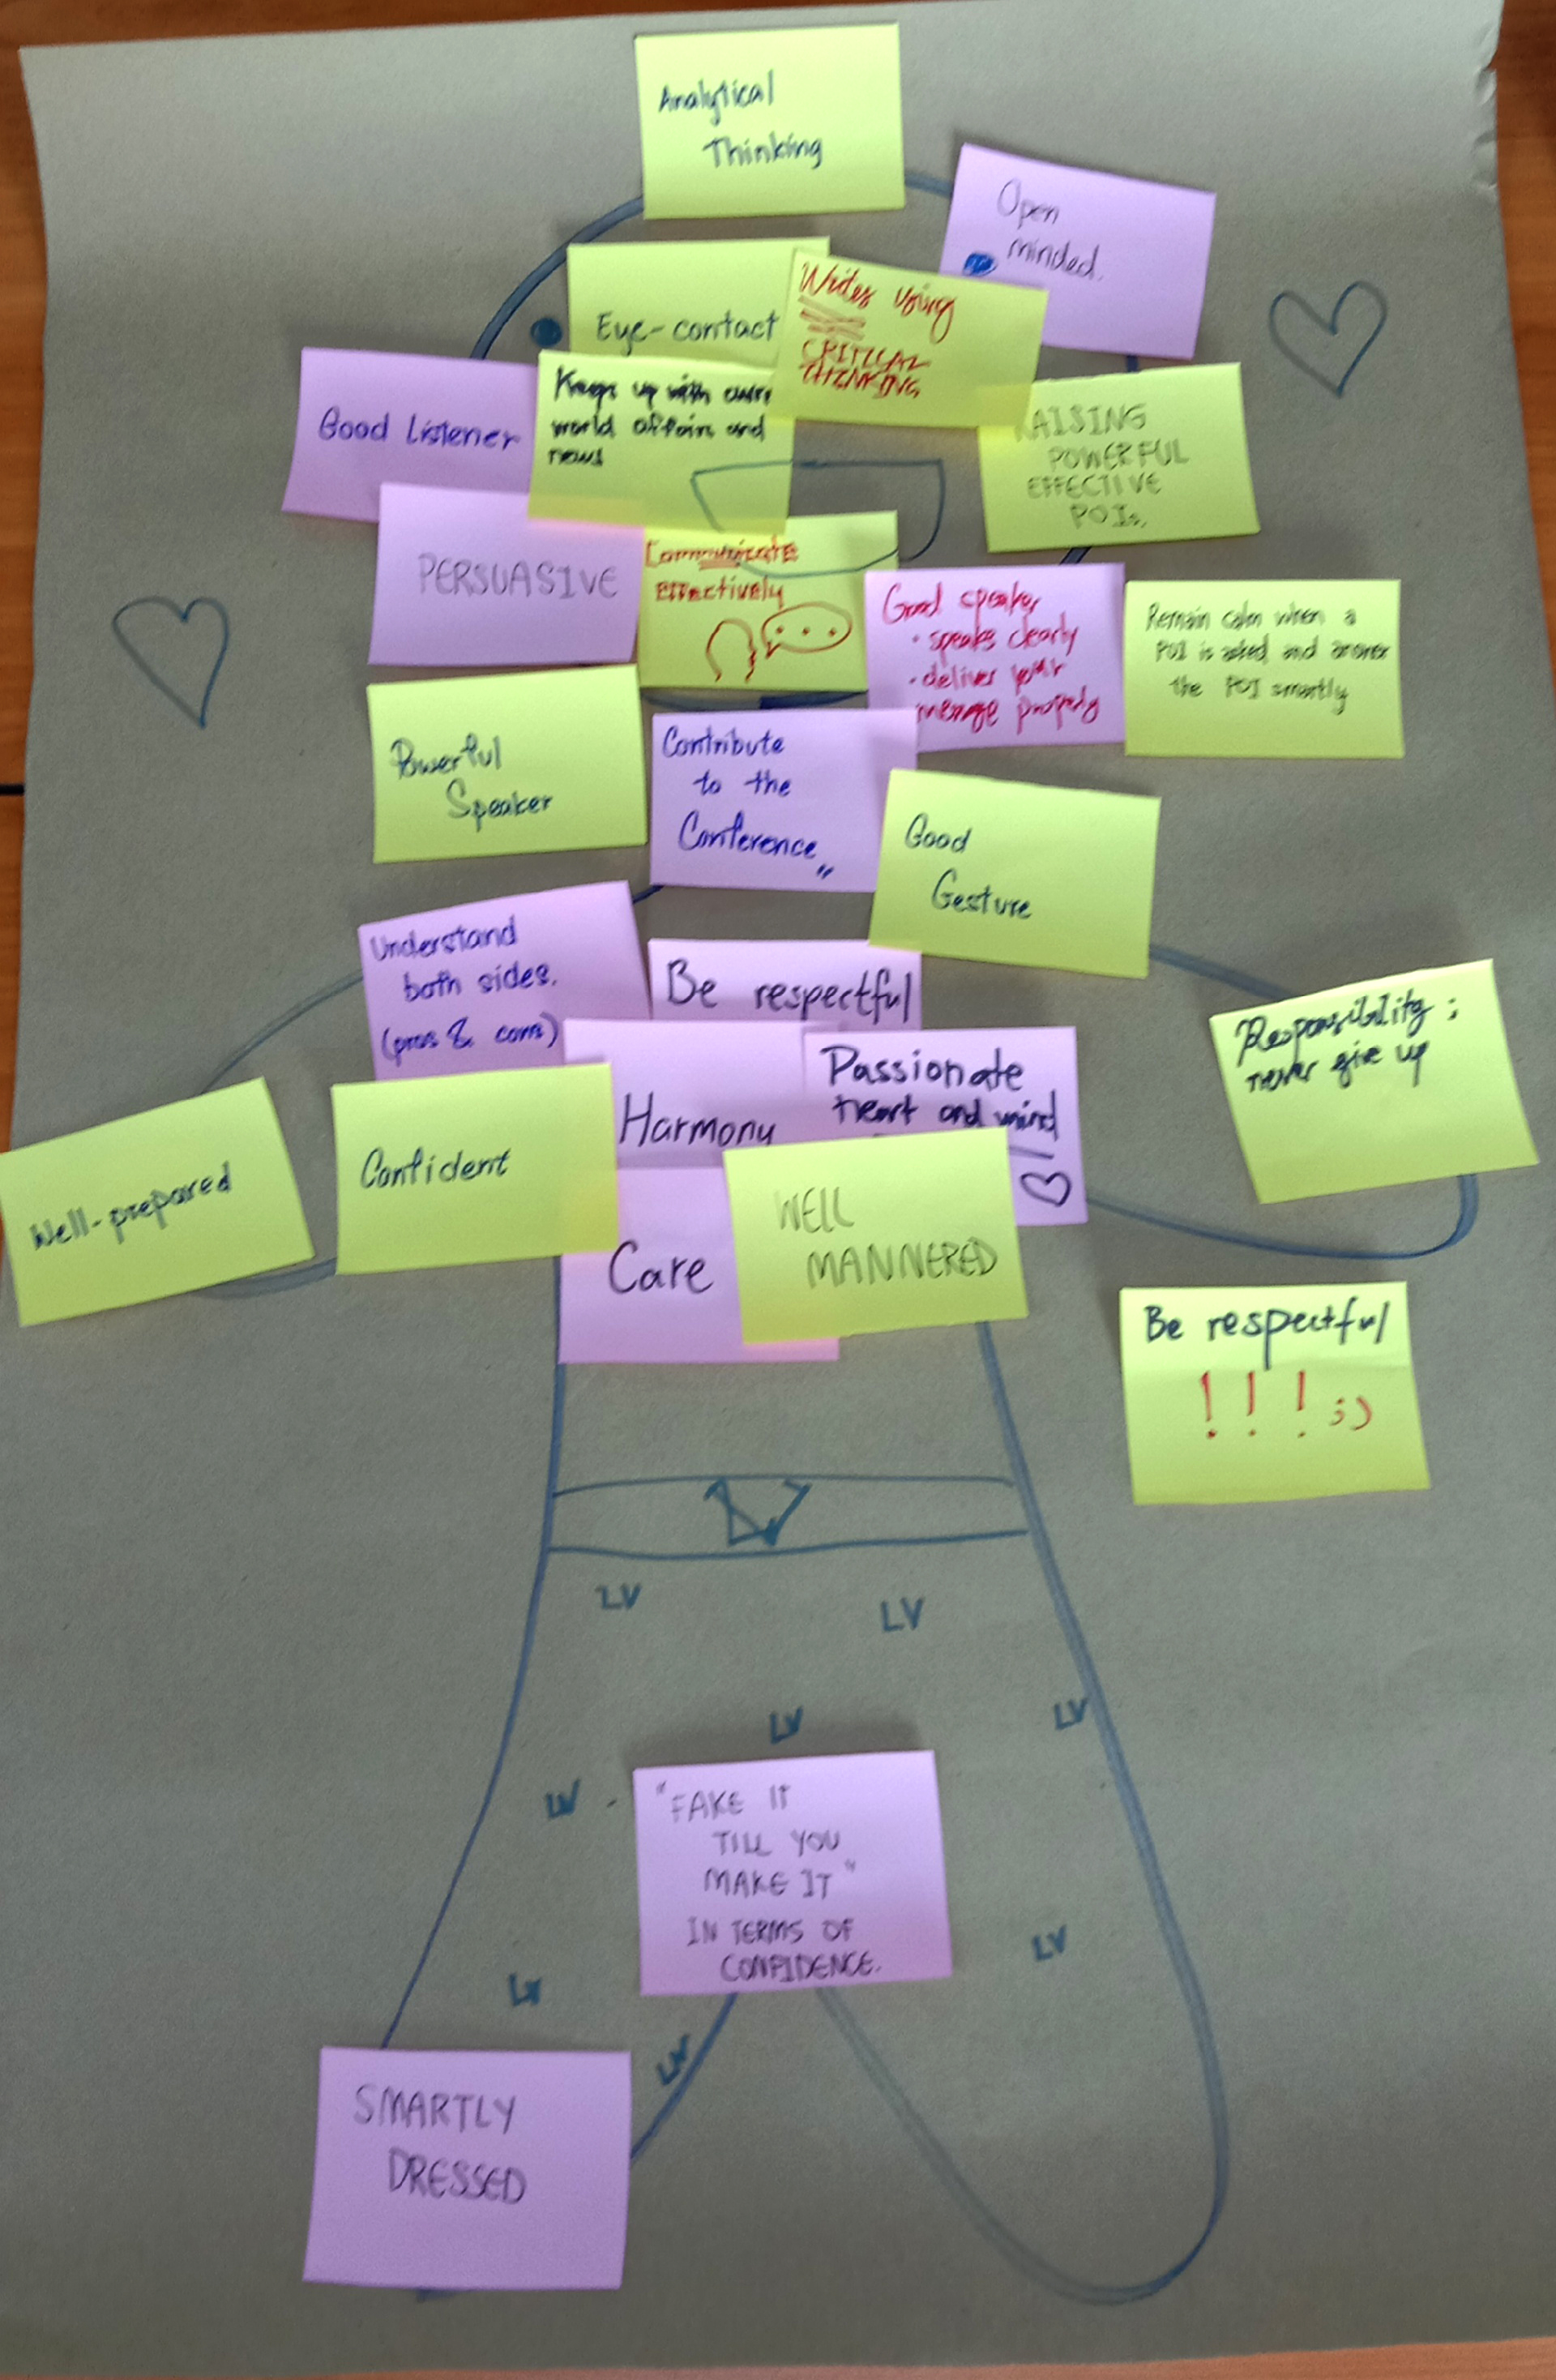 Analytical
Thinking
Open
minded.
Eye-contact
Writes using
CRITICAL
THINKING
Good Listener
Keeps up with
world affairs and
news
RAISING
POWERFUL
EFFECTIVE
POIs.
PERSUASIVE
Communicate
Effectively
Good speaker
• speaks clearly
• deliver your
message properly
Remain calm when a
POI is asked and answer
the POI smartly
Powerful
Speaker
Contribute
to the
Conference
Good
Gesture
Understand
both sides.
(pros & cons)
Be respectful
Responsibility:
never give up
Harmony
Passionate
heart and mind
Well-prepared
Confident
WELL
MANNERED
Care
Be respectful
! ! ! ;)
LV
LV
LV
LV
LV
"FAKE IT
TILL YOU
MAKE IT"
IN TERMS OF
CONFIDENCE.
LV
LV
LV
SMARTLY
DRESSED